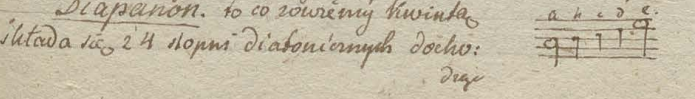 Diapenon. to co zowiemy kwintą
składa się z 4 stopni diatonicznych docho:
dzi
a h c d e.